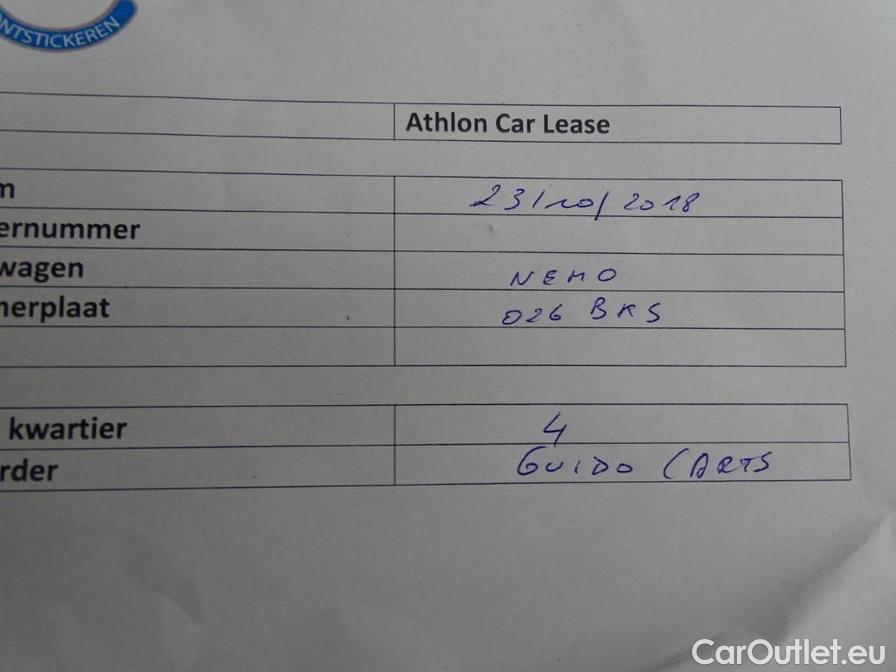 NTSTICKEREN
Athlon Car Lease
m 23/10/2018
ernummer
wagen NEMO
nerplaat 026 BKS
kwartier 4
rder GUIDO CARTS
CarOutlet.eu